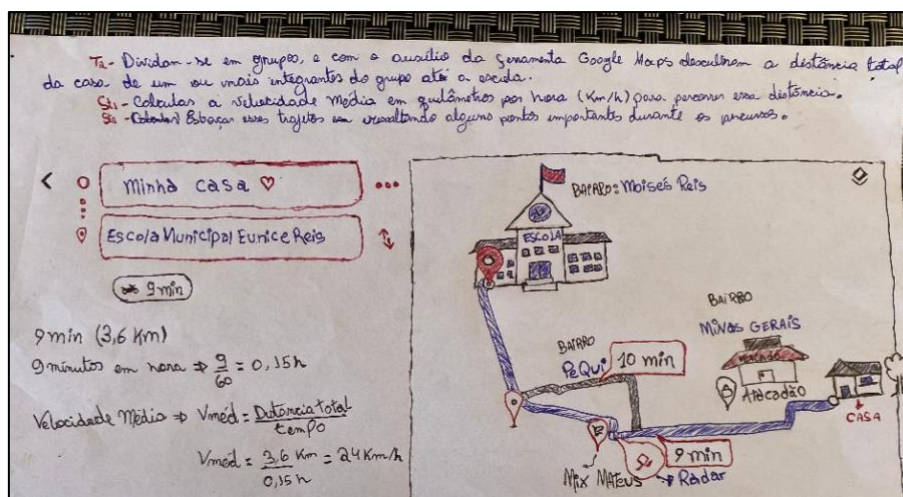 Ta - Dividam-se em grupos, e com o auxílio da ferramenta Google Maps descubram a distância total
da casa de um ou mais integrantes do grupo até a escola.
- Calculas a velocidade média em quilômetros por hora (Km/h) para percorrer essa distância.
- Esboçar esses trajetos ressaltando alguns pontos importantes durante os percursos.
Minha casa
Escola Municipal Eunice Reis
9 min
9 min (3,6 Km)
9 minutos em hora ⇒ 9/60 = 0,15h
Velocidade Média ⇒ Vméd = Distância total / tempo
Vméd = 3,6 Km / 0,15 h = 24 Km/h
BAIRRO: Moisés Reis
ESCOLA
BAIRRO
MINAS GERAIS
BAIRRO
PeQui
10 min
Atacadão
CASA
9 min
Mix MATeus
Radar